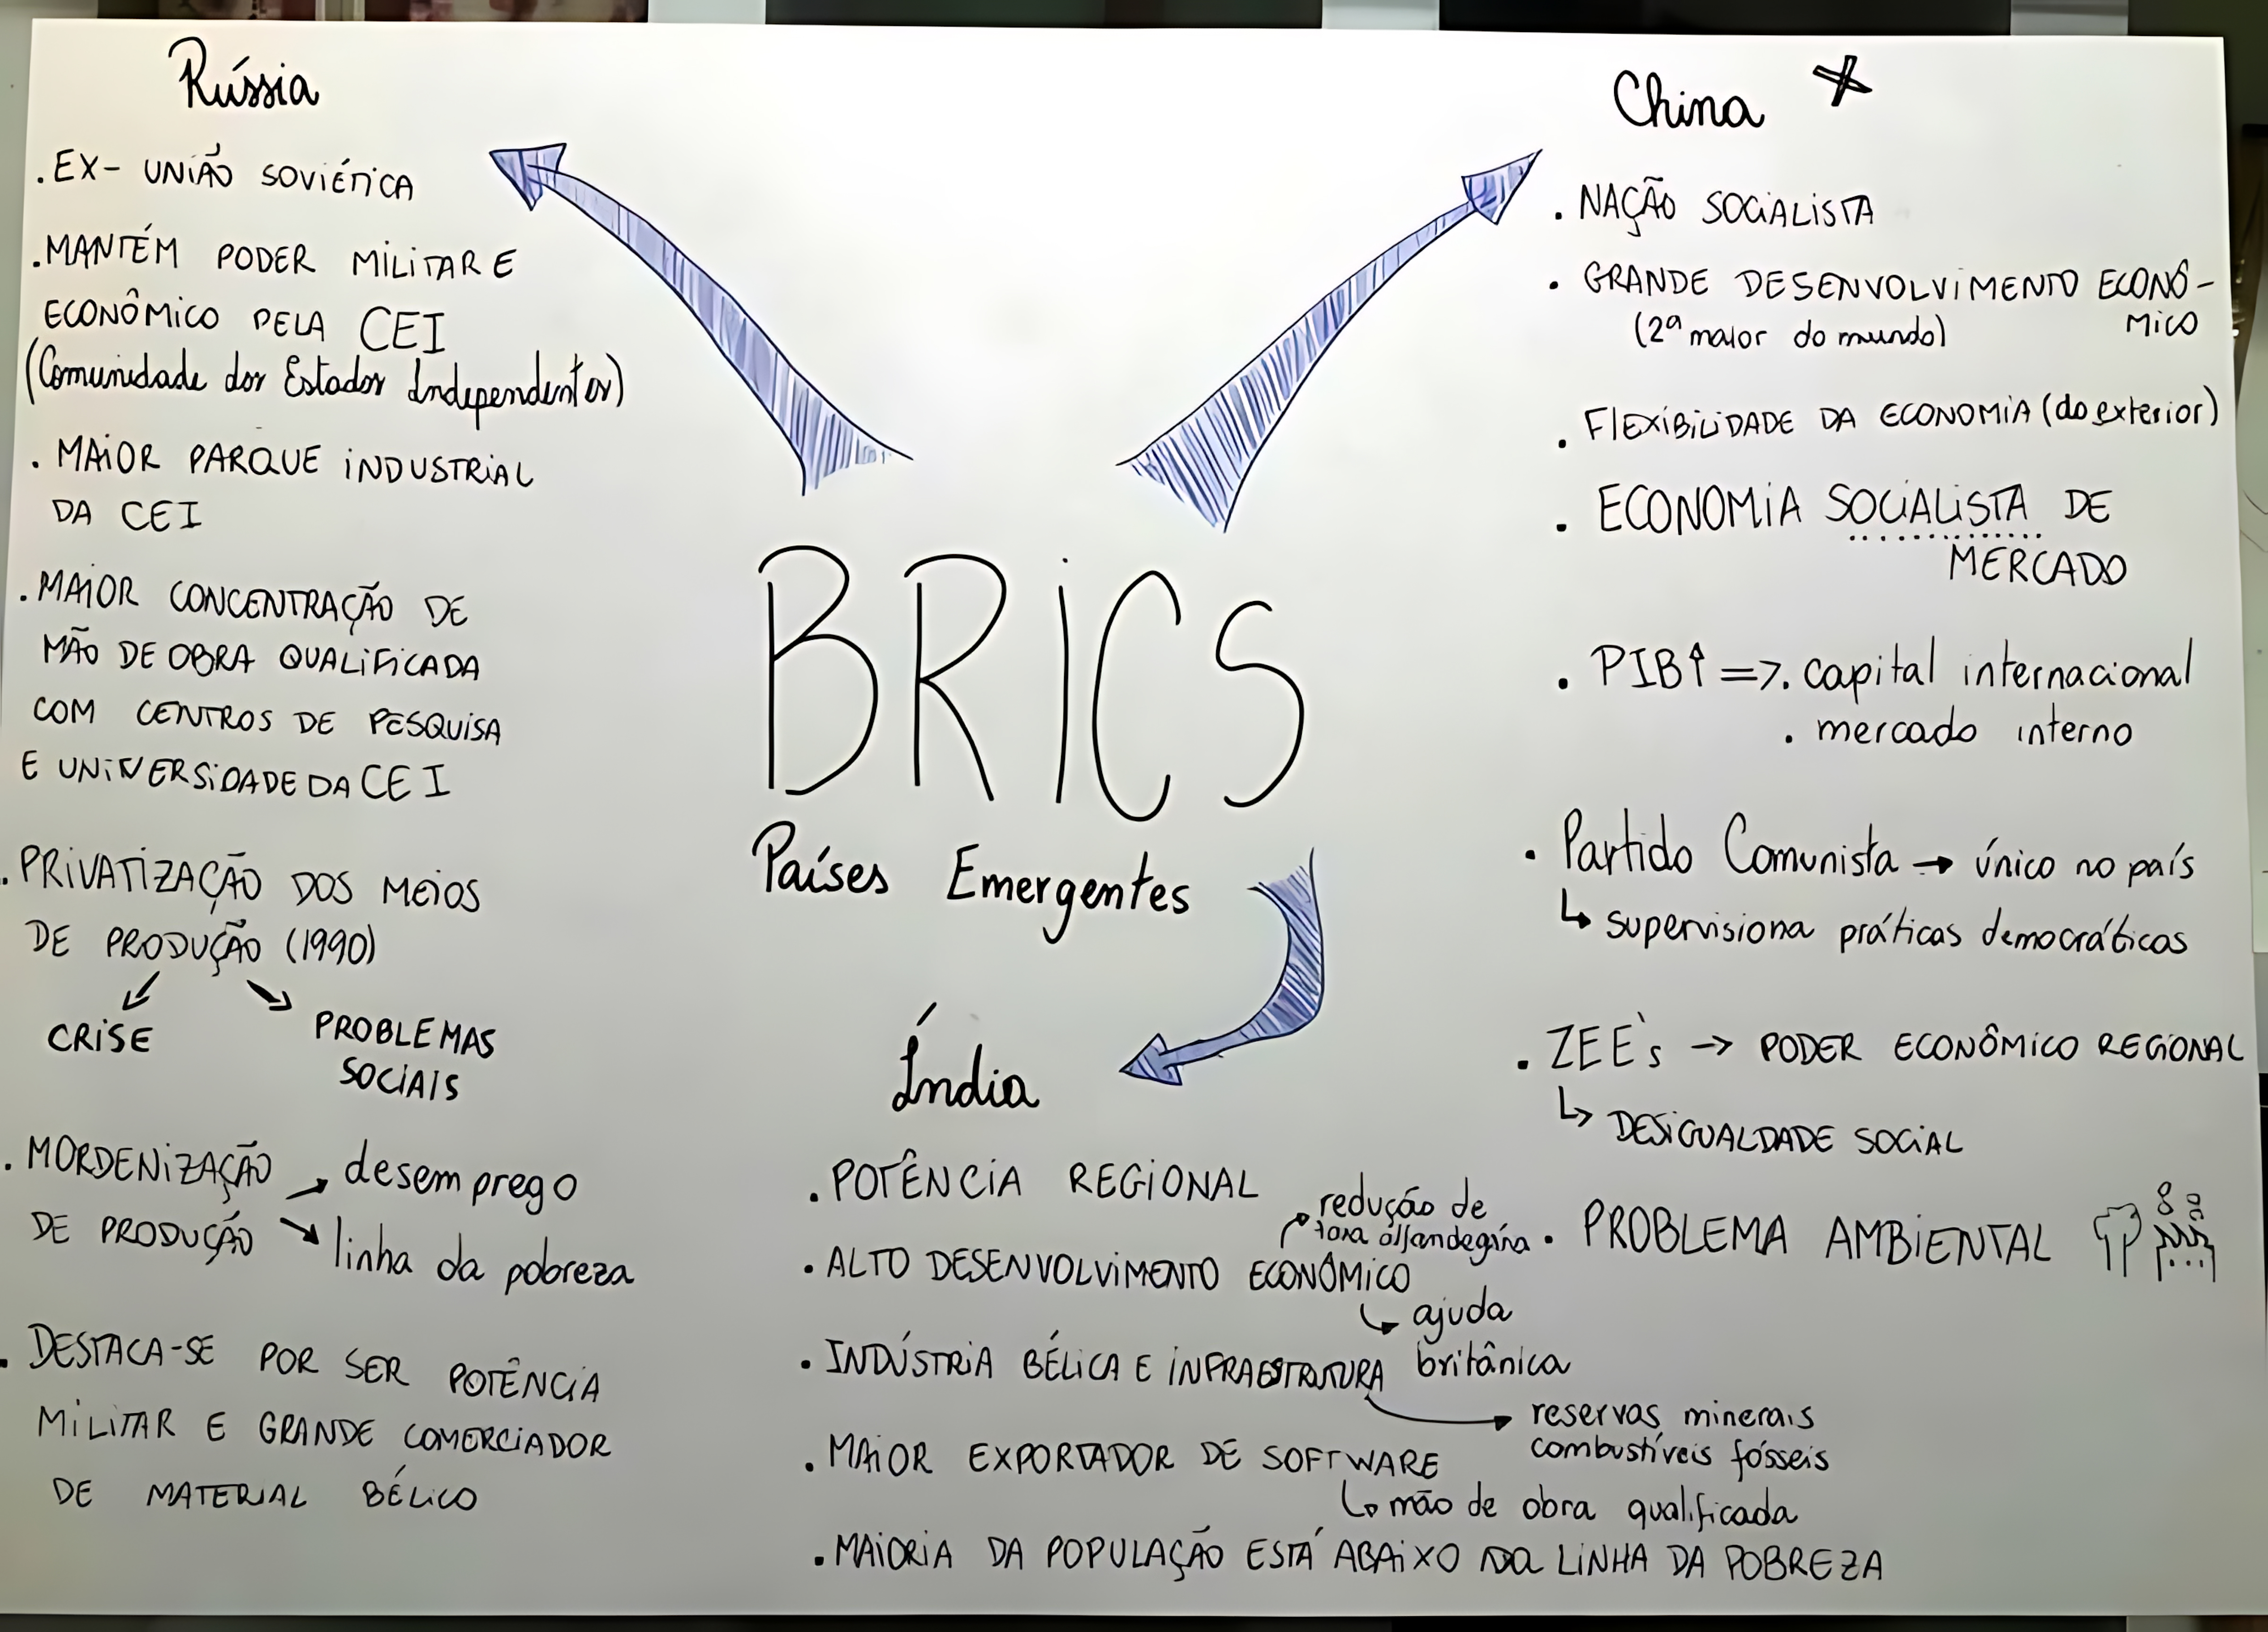 Rússia
. EX- UNIÃO SOVIÉTICA
. MANTÉM PODER MILITAR E
ECONÔMICO PELA CEI
(Comunidade dos Estados Independentes)
. MAIOR PARQUE INDUSTRIAL
DA CEI
. MAIOR CONCENTRAÇÃO DE
MÃO DE OBRA QUALIFICADA
COM CENTROS DE PESQUISA
E UNIVERSIDADE DA CEI
. PRIVATIZAÇÃO DOS MEIOS
DE PRODUÇÃO (1990)
CRISE
PROBLEMAS
SOCIAIS
. MORDENIZAÇÃO → desemprego
DE PRODUÇÃO → linha da pobreza
. DESTACA-SE POR SER POTÊNCIA
MILITAR E GRANDE COMERCIADOR
DE MATERIAL BÉLICO
BRICS
Países Emergentes
Índia
. POTÊNCIA REGIONAL
redução de
taxa alfandegária
. ALTO DESENVOLVIMENTO ECONÔMICO
↳ ajuda
britânica
. INDÚSTRIA BÉLICA E INFRAESTRUTURA
→ reservas minerais
combustíveis fósseis
. MAIOR EXPORTADOR DE SOFTWARE
↳ mão de obra qualificada
. MAIORIA DA POPULAÇÃO ESTÁ ABAIXO DA LINHA DA POBREZA
China
. NAÇÃO SOCIALISTA
. GRANDE DESENVOLVIMENTO ECONÔ-
MICO
(2ª maior do mundo)
. FLEXIBILIDADE DA ECONOMIA (do exterior)
. ECONOMIA SOCIALISTA DE
MERCADO
. PIB↑ => . capital internacional
. mercado interno
. Partido Comunista → único no país
↳ supervisiona práticas democráticas
. ZEE's → PODER ECONÔMICO REGIONAL
↳ DESIGUALDADE SOCIAL
. PROBLEMA AMBIENTAL